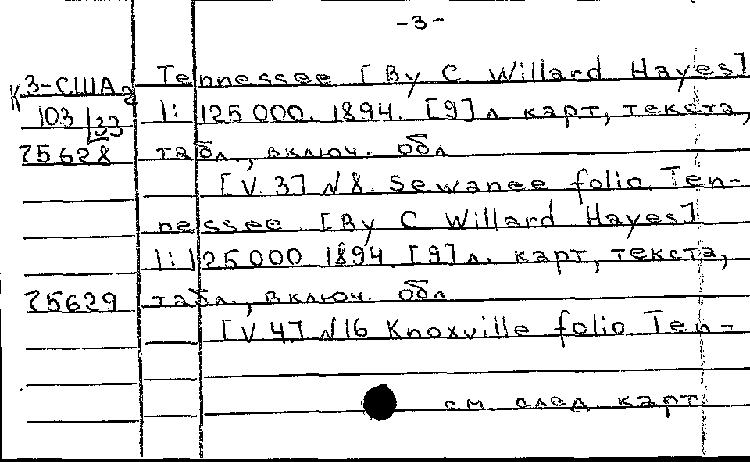 -3-
К3-США2 Tennessee [By C. Willard Hayes]
103 1:125000. 1894. [9] л. карт, текста,
75628 табл., включ. обл
[V. 3] N8. Sewanee folio Ten-
nessee [By C Willard Hayes]
1:125000 1894 [9] л. карт, текста,
75629 табл., включ. обл
[V. 4] N16 Knoxville folio Ten-
см. след карт.